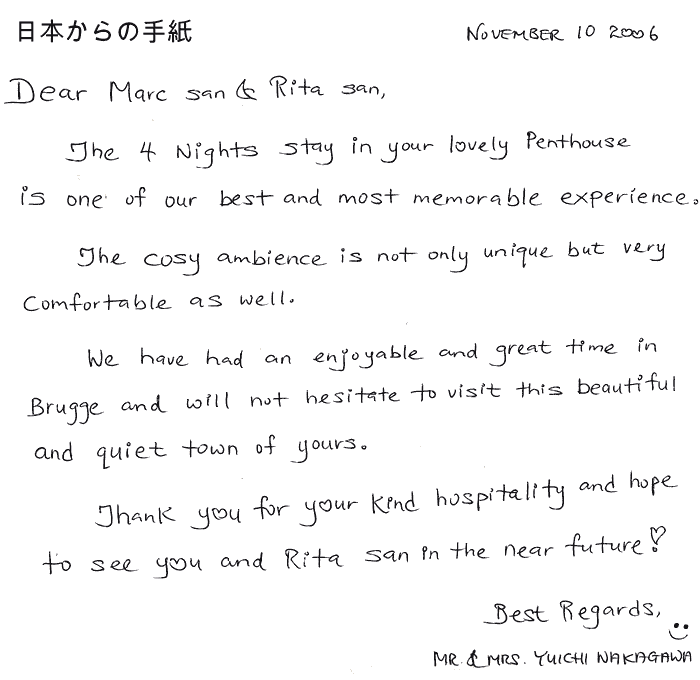 日本からの手紙
NOVEMBER 10 2006
Dear Marc san & Rita san,
The 4 Nights stay in your lovely Penthouse
is one of our best and most memorable experience.
The cosy ambience is not only unique but very
comfortable as well.
We have had an enjoyable and great time in
Brugge and will not hesitate to visit this beautiful
and quiet town of yours.
Thank you for your kind hospitality and hope
to see you and Rita san in the near future!
Best Regards,
MR. & MRS. YUICHI NAKAGAWA